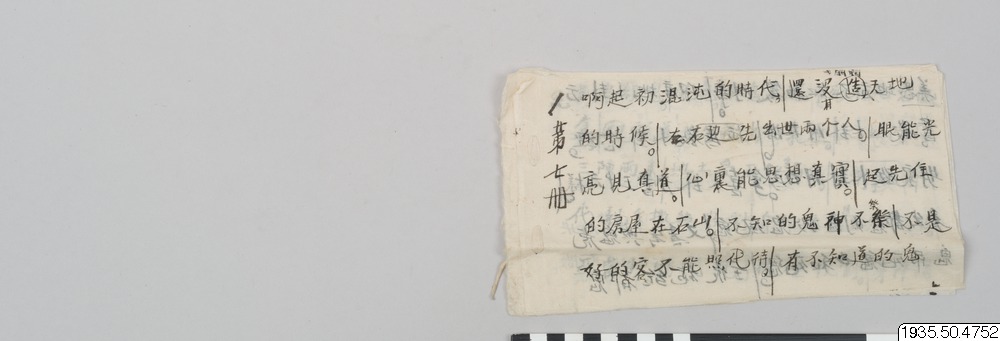 第七冊
啊起初混沌的時代。還沒有造天地
的時候。在石边先出世兩个人。眼能光
亮見真道。心裏能思想真實。起先作
的房屋在石山。不知的鬼神不祭 不是
好的客不能照代待。有不知道的鬼
1935.50.4752